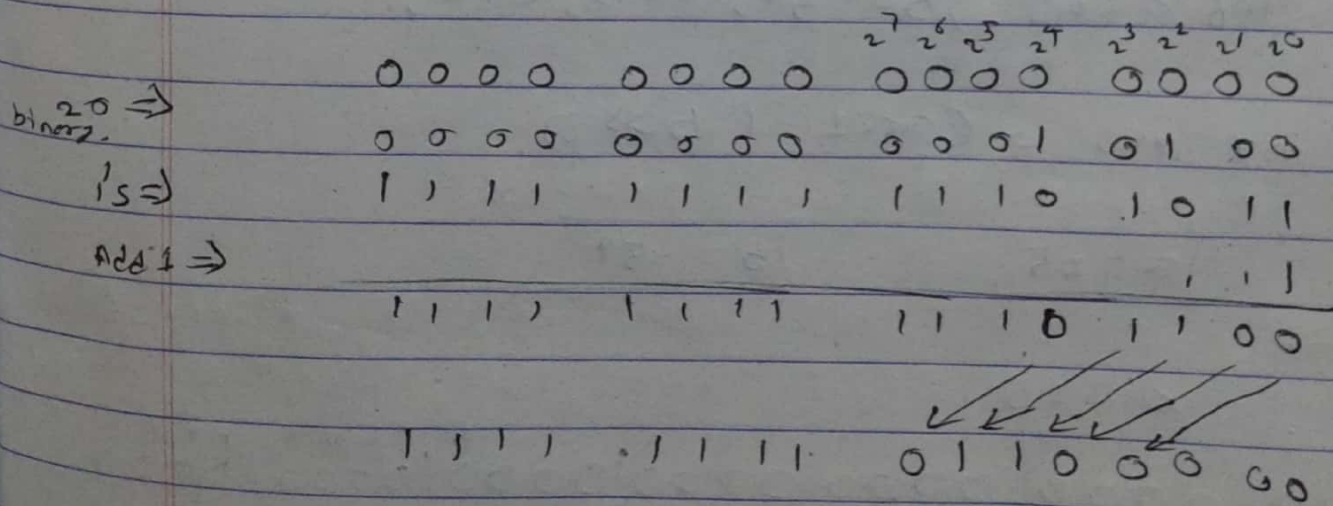 2⁷ 2⁶ 2⁵ 2⁴ 2³ 2² 2¹ 2⁰
0 0 0 0 0 0 0 0 0 0 0 0 0 0 0 0
20 ⇒
binary. 0 0 0 0 0 0 0 0 0 0 0 1 0 1 0 0
1's ⇒ 1 1 1 1 1 1 1 1 1 1 1 0 1 0 1 1
Add 1 ⇒ 1 1 1
1 1 1 1 1 1 1 1 1 1 1 0 1 1 0 0
1 1 1 1 1 1 1 1 0 1 1 0 0 0 0 0